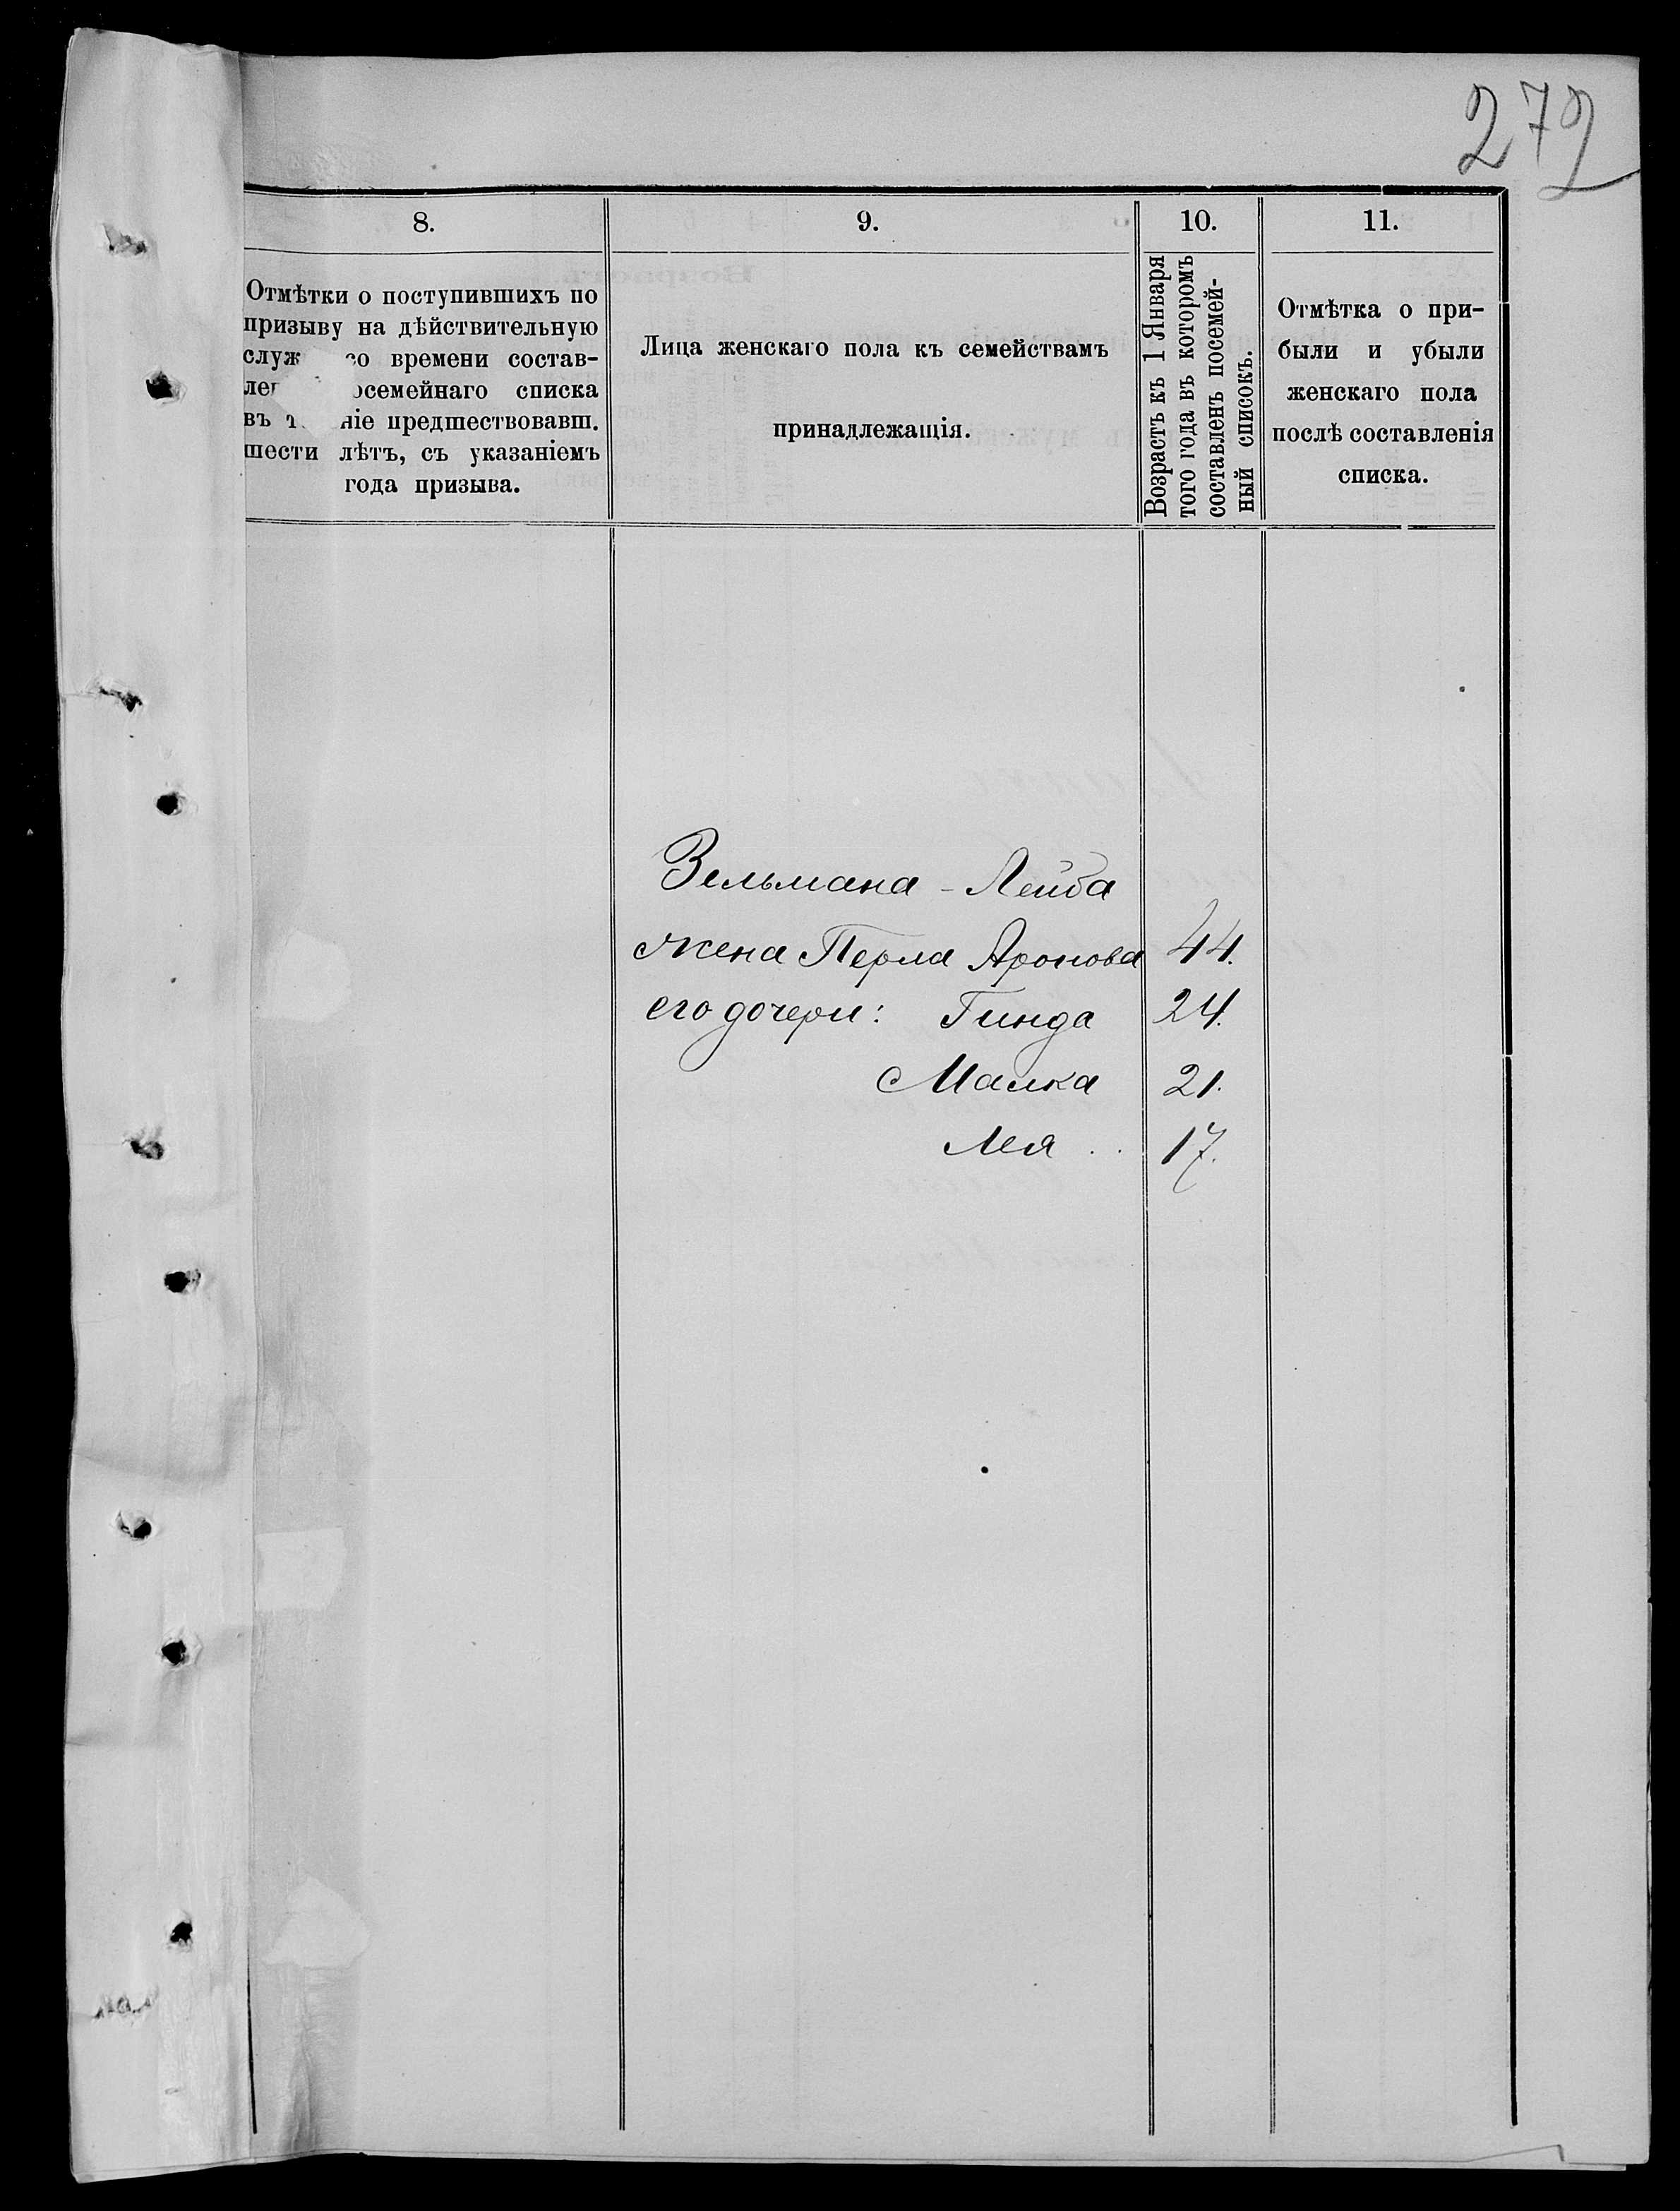 272
8.
Отмѣтки о поступившихъ по
призыву на дѣйствительную
служ со времени состав-
лен осемейнаго списка
въ т ніе предшествовавш.
шести лѣтъ, съ указаніемъ
года призыва.
9.
Лица женскаго пола къ семействамъ
принадлежащія.
10.
Возрастъ къ 1 Января
того года въ которомъ
составленъ посемей-
ный списокъ.
11.
Отмѣтка о при-
были и убыли
женскаго пола
послѣ составленія
списка.
Зельмана - Лейба
жена Перла Аронова 44.
его дочери: Гинда 24.
Малка 21.
Лея . . 17.